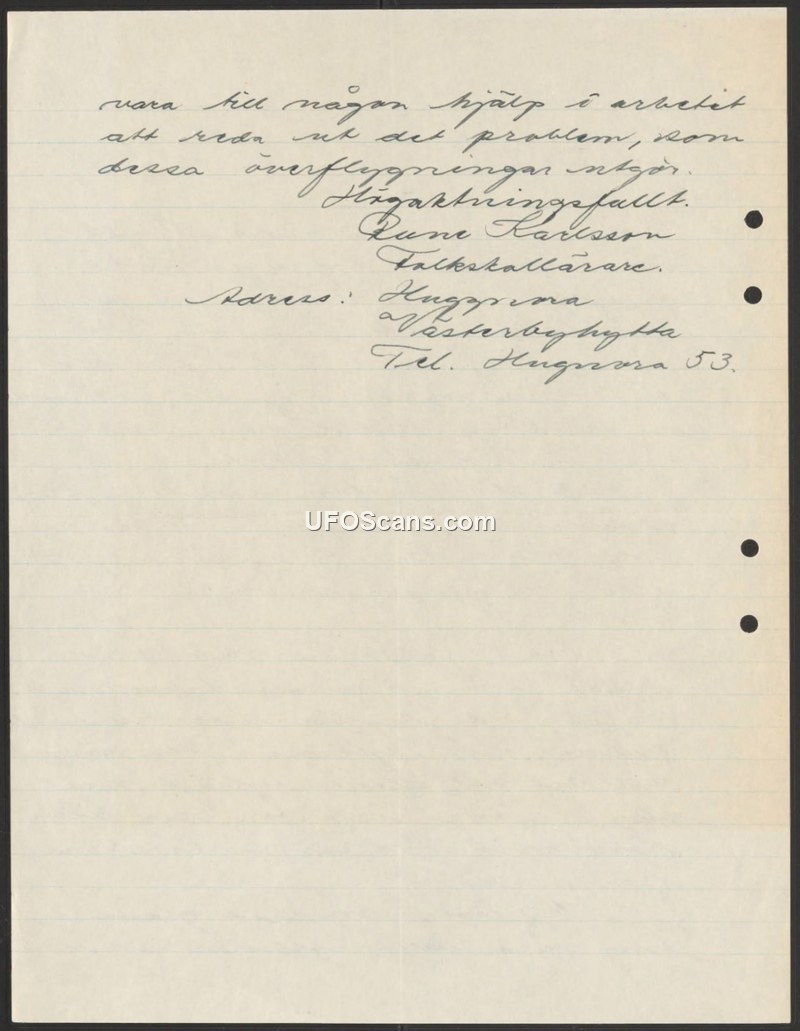 vara till någon hjälp i arbetet
att reda ut det problem, som
dessa överflygningar utgör.
Högaktningsfullt.
Rune Karlsson
Folkskollärare.
Adress: Hugnora
Västerbyhytta
Tel. Hugnora 53.
UFOScans.com